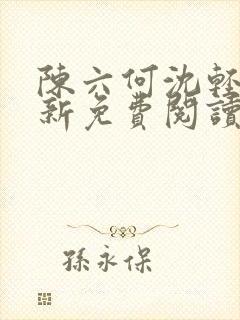 陳六何沈輕
新免費閱讀
孫永保